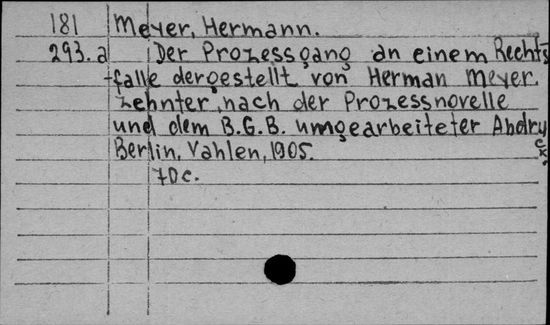 181 Meyer, Hermann.
293.a Der Prozessgang an einem Rechts
falle dergestellt von Herman Meyer.
zehnter, nach der Prozessnovelle
und dem B.G.B. umgearbeiteter Abdruck
Berlin, Vahlen, 1905.
70c.